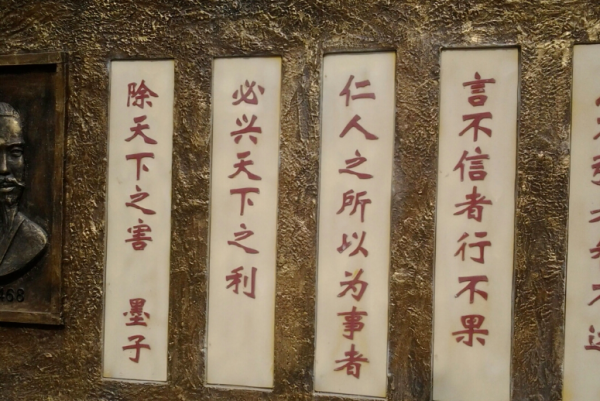 言不信者行不果
仁人之所以为事者
必兴天下之利
除天下之害 墨子